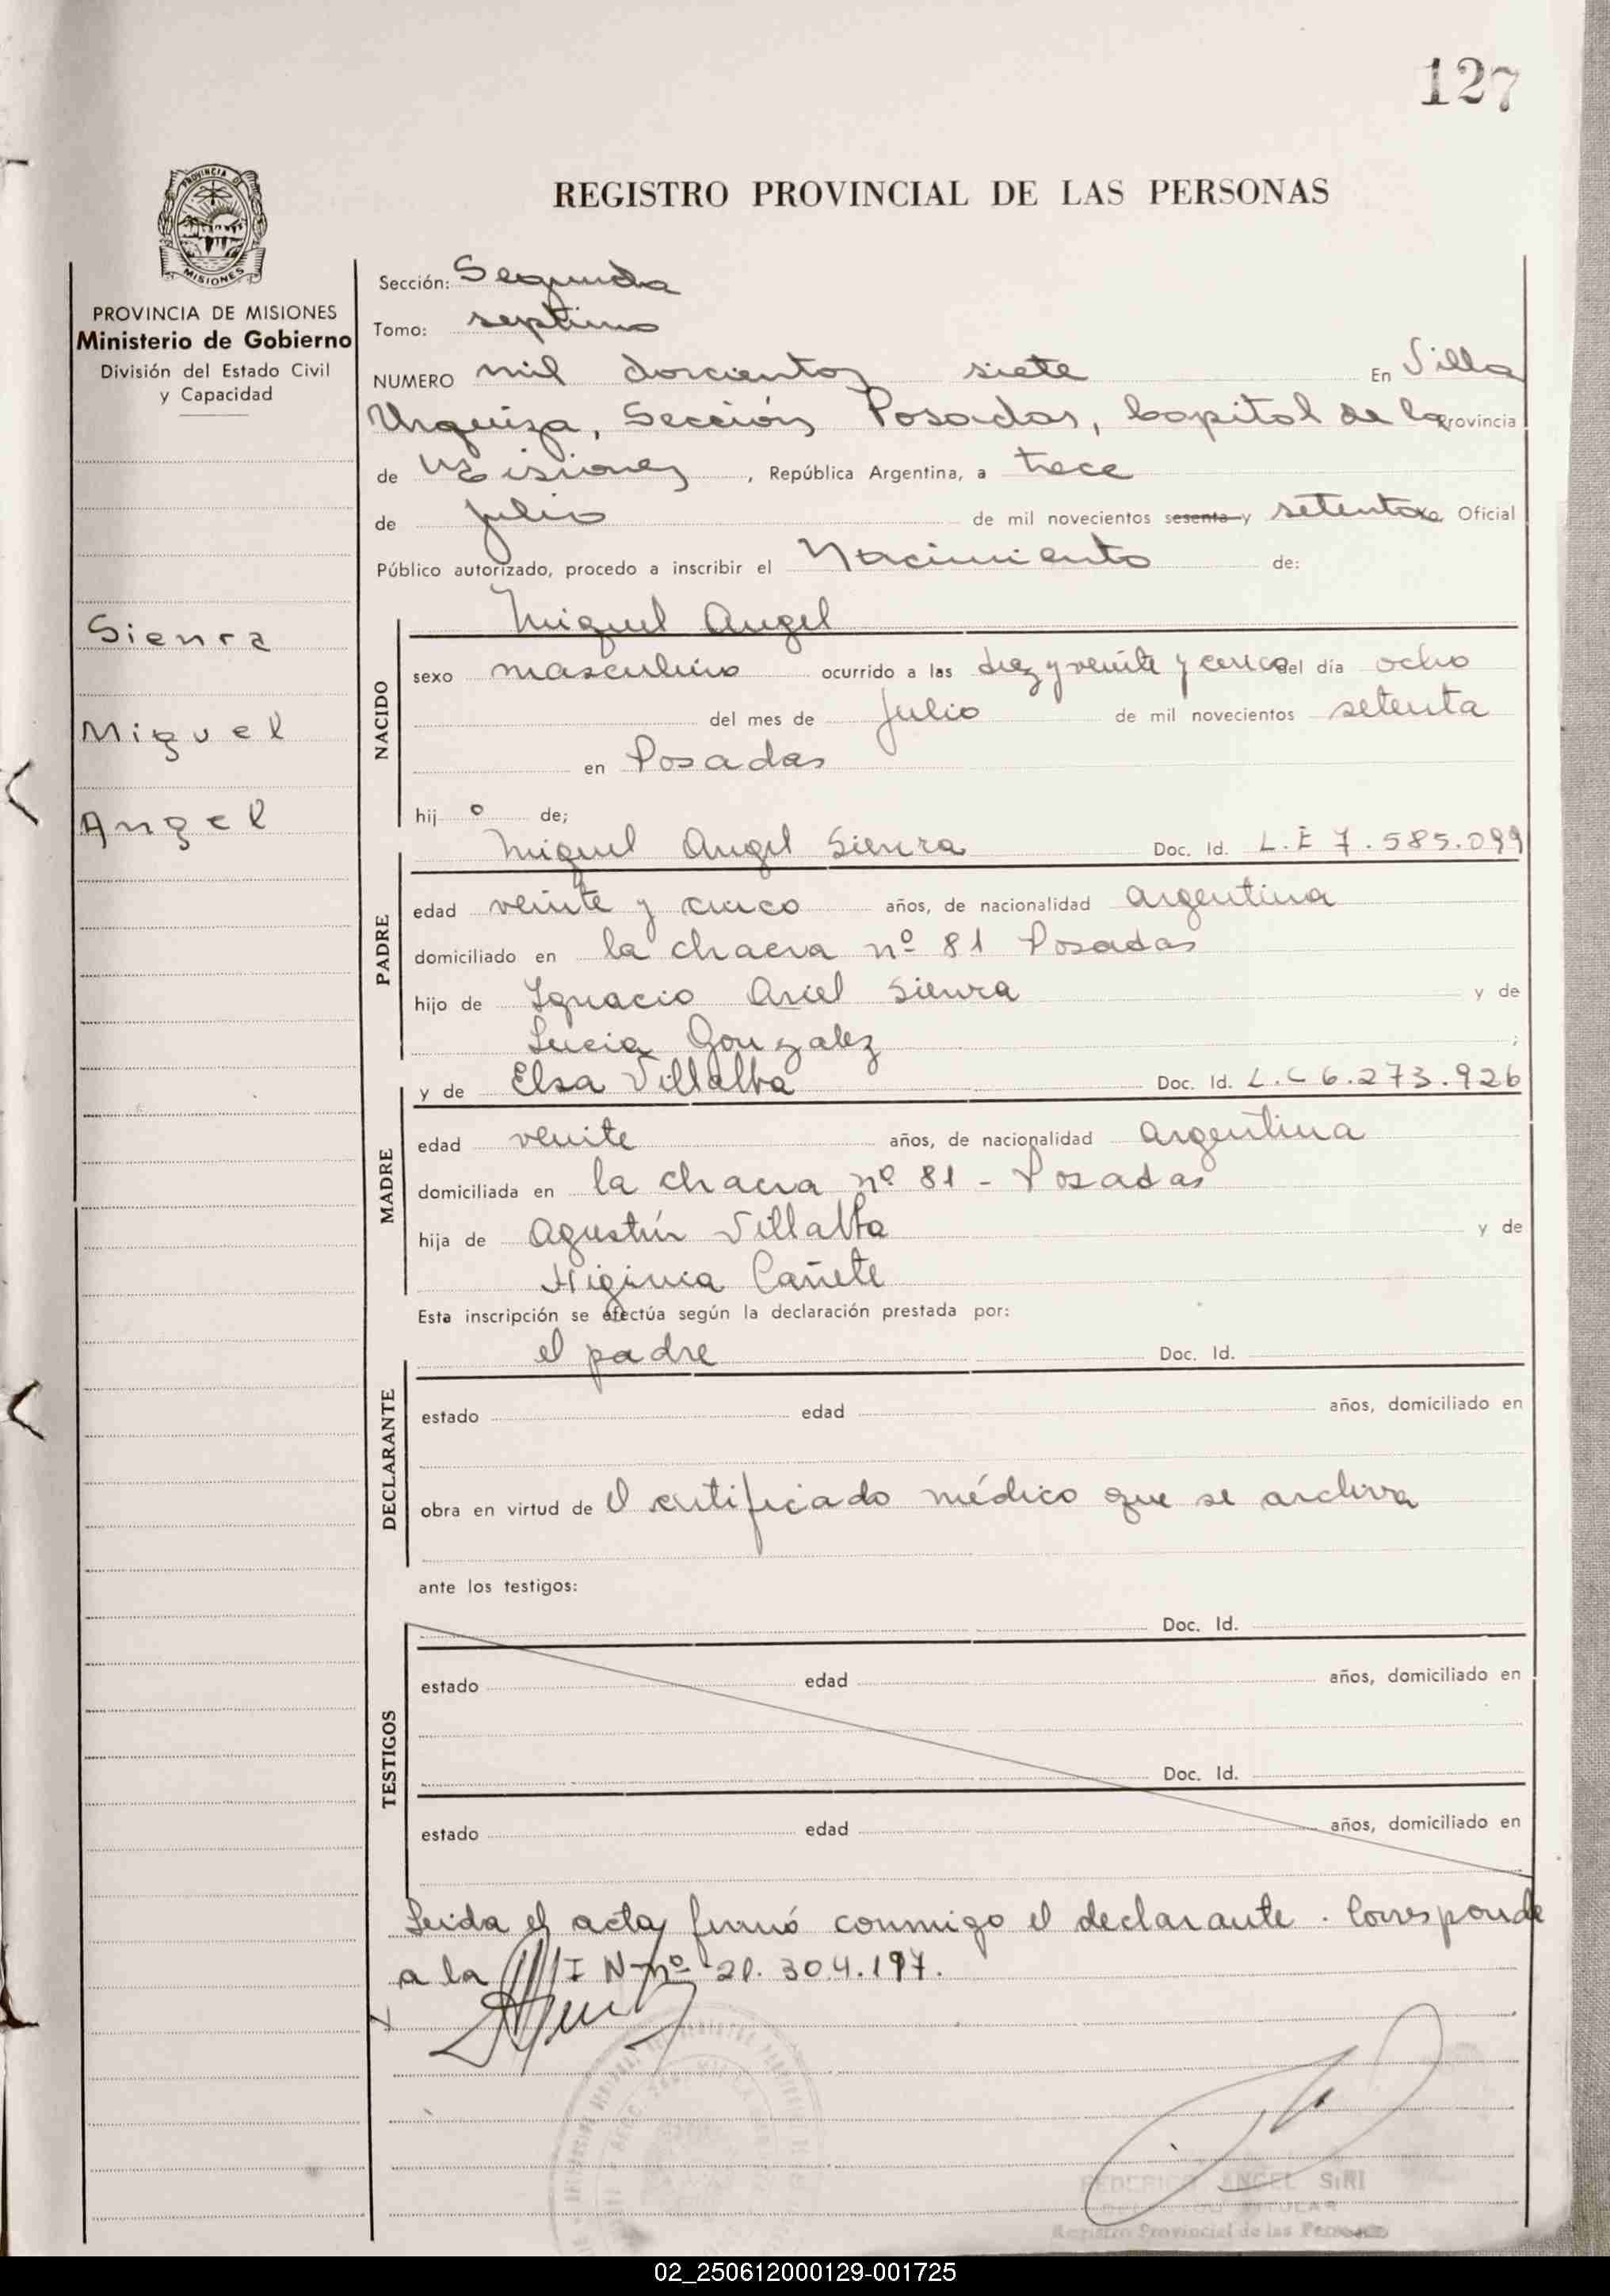 127
REGISTRO PROVINCIAL DE LAS PERSONAS
PROVINCIA DE
MISIONES
PROVINCIA DE MISIONES
Ministerio de Gobierno
División del Estado Civil
y Capacidad
Sienra
Miguel
Angel
Sección: Segunda
Tomo: septimo
NUMERO mil doscientos siete En Villa
Urquiza, Sección Posadas, Capital de la Provincia
de Misiones, República Argentina, a trece
de julio de mil novecientos sesenta y setenta Oficial
Público autorizado, procedo a inscribir el Nacimiento de:
NACIDO
Miguel Angel
sexo masculino ocurrido a las diez y veinte y cinco del día ocho
del mes de julio de mil novecientos setenta
en Posadas
hij o de;
PADRE
Miguel Angel Sienra Doc. Id. L.E 7.585.099
edad veinte y cinco años, de nacionalidad argentina
domiciliado en la chacra nº 81 Posadas
hijo de Ignacio Ariel Sienra y de
Lucia Gonzalez ;
MADRE
y de Elsa Villalba Doc. Id. L.C 6.273.926
edad veinte años, de nacionalidad argentina
domiciliada en la chacra nº 81 - Posadas
hija de Agustín Villalba y de
Higinia Cañete
Esta inscripción se efectúa según la declaración prestada por:
DECLARANTE
el padre Doc. Id.
estado edad años, domiciliado en
obra en virtud de el certificado médico que se archiva
ante los testigos:
TESTIGOS
Doc. Id.
estado edad años, domiciliado en
Doc. Id.
estado edad años, domiciliado en
Leida el acta, firmó conmigo el declarante. Corresponde
a la I N nº 21.304.197.
FEDERICO ANGEL SIRI
DELEGADO TITULAR
Registro Provincial de las Personas
02_250612000129-001725